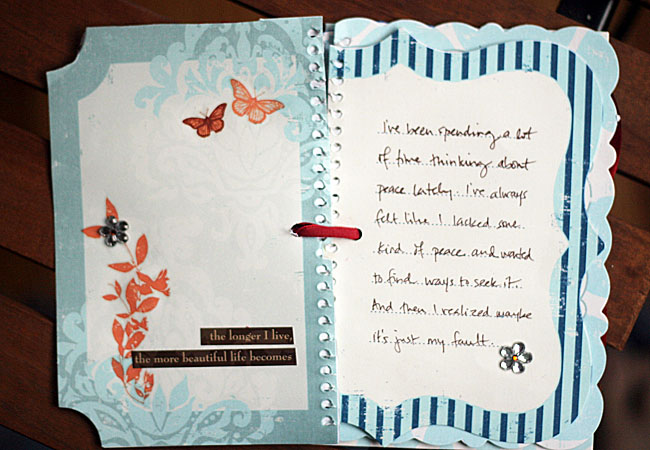 the longer I live,
the more beautiful life becomes
I've been spending a lot
of time thinking about
peace lately. I've always
felt like I lacked some
kind of peace and wanted
to find ways to seek it.
And then I realized maybe
it's just my fault...